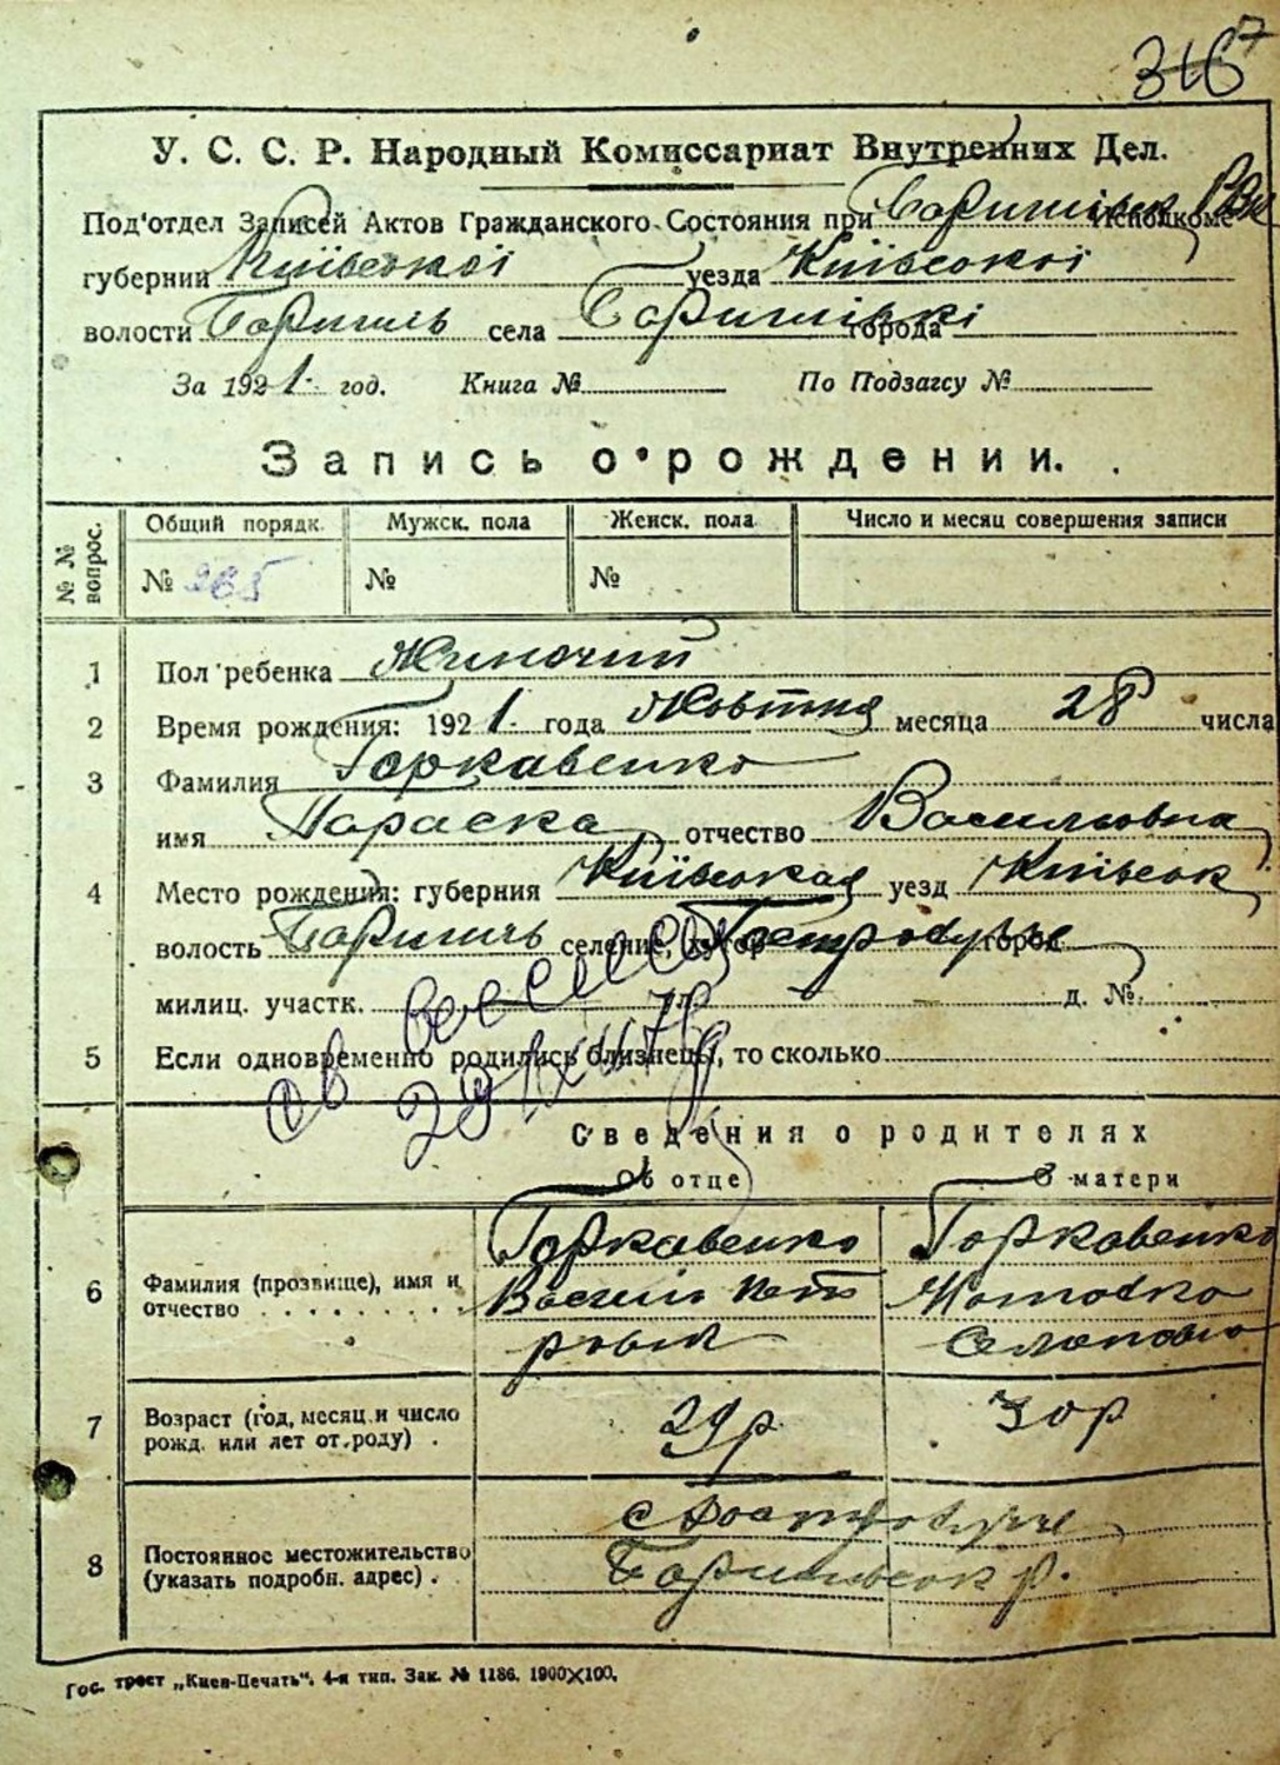 3167
У. С. С. Р. Народный Комиссариат Внутренних Дел.
Под'отдел Записей Актов Гражданского Состояния при Исполкоме
губернии Київської уезда Київської
волости Баришль села города
За 1921. год. Книга № По Подзагсу №
Запись о рождении.
№ № вопрос. Общий порядк. Мужск. пола Женск. пола Число и месяц совершения записи
№ 265 № №
1 Пол ребенка Жиночий
2 Время рождения: 1921. года Жовтня месяца 28 числа
3 Фамилия Горкавенко
имя Параска отчество Васильовна
4 Место рождения: губерния Київськая уезд Київськ
волость селение, хутор город
милиц. участк. ул. д. №
5 Если одновременно родились близнецы, то сколько
Сведения о родителях
Об отце О матери
6 Фамилия (прозвище), имя и отчество Горкавенко Горкавенко
Василь Пет
рович
7 Возраст (год, месяц и число рожд. или лет от роду) 29 р 30 р
8 Постоянное местожительство (указать подробн. адрес)
Гос. трест „Киев-Печать“. 4-я тип. Зак. № 1186. 1900×100.